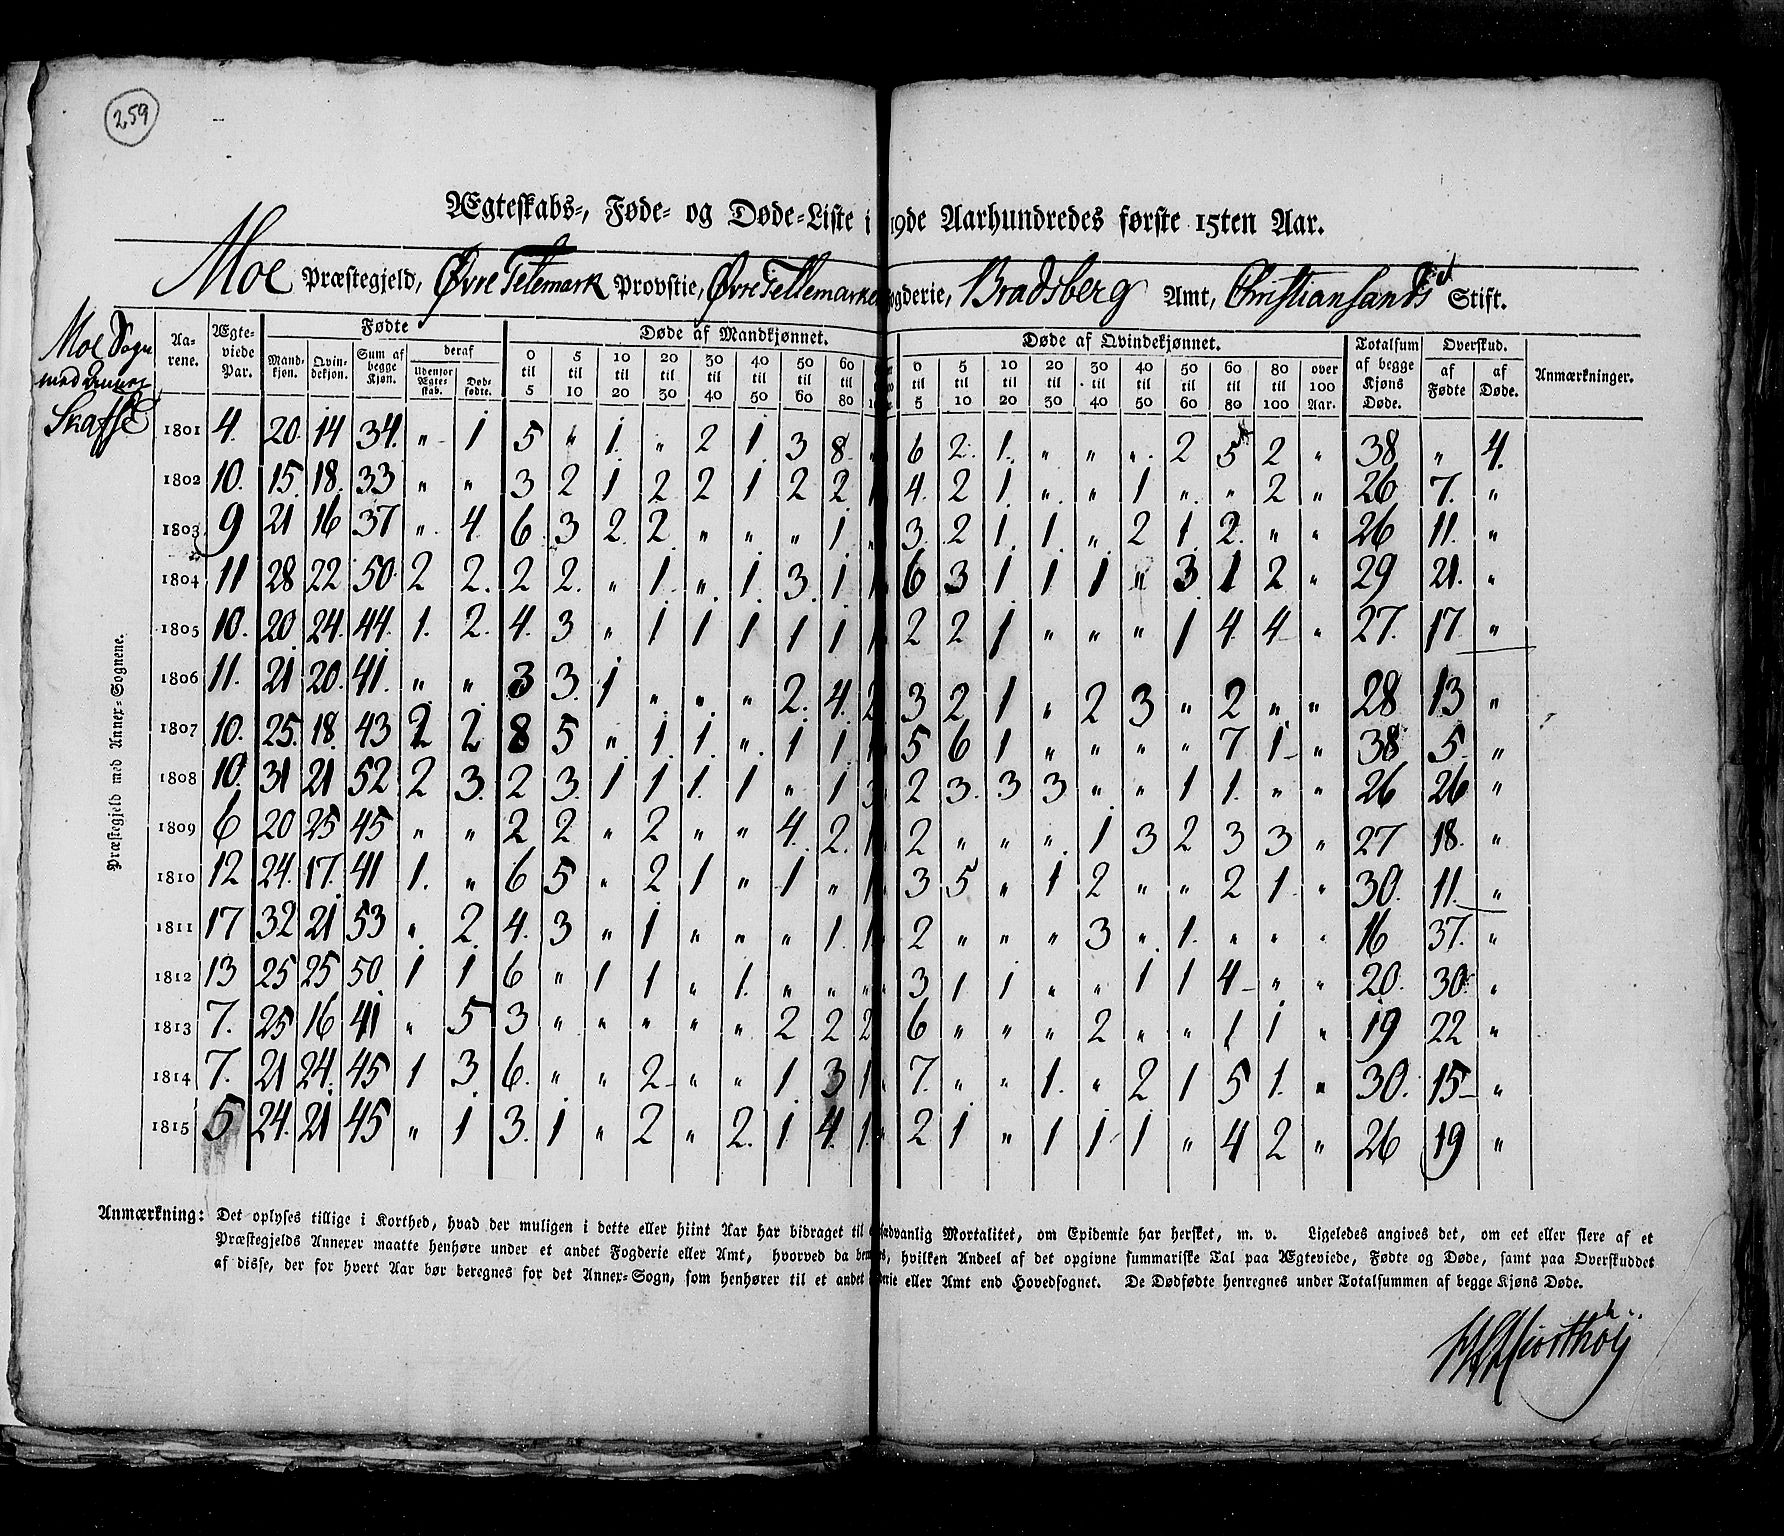 259
Ægteskabs-, Føde- og Døde-Liste i 19de Aarhundredes første 15ten Aar.
Moe Præstegjeld, Øvre Telemark Provstie, Øvre Tellemarken ogderie, Bradsberg Amt, Christiansands Stift.
Moe Sogn
med Annex
Skafse
Præstegjeld med Annex-Sognene.
Aarene. Ægteviede Par. Fødte Døde af Mandkjønnet. Døde af Qvindekjønnet. Totalsum af begge Kjøns Døde. Overskud. Anmærkninger.
Mandkjøn. Qvindekjøn. Sum af begge Kjøn. deraf Udenfor Ægtestab. Dødfødte. 0 til 5 5 til 10 10 til 20 20 til 30 30 til 40 40 til 50 50 til 60 60 til 80 0 til 5 5 til 10 10 til 20 20 til 30 30 til 40 40 til 50 50 til 60 60 til 80 80 til 100 over 100 Aar. af Fødte af Døde.
1801 4. 20. 14 34. " 1 5 " 1. " 2 1. 3 8. " 6 2. 1. " " " 2 5 2 " 38 " 4.
1802 10. 15. 18. 33 " " 3 2 1 2 2 1 2 2 1 4. 2 1. " " 1 " " 2 " 26 7. "
1803 9 21 16 37 " 4. 6. 3 2. 2. " " " 1. " 3. 2 1. 1. " 2 1. 2. " " 26 11. "
1804 11 28 22 50. 2 2. 2 2. " 1. " 1. 3. 1. 1 6 3 1 1 1 " 3. 1 2 " 29 21. "
1805 10. 20. 24. 44. 1. 2. 4. 3 " 1 1 1 1 1 1 2 2 1 " " " 1 4 4 " 27. 17 "
1806 11. 21 20. 41. " " 3 3. 1 " " " 2. 4. 2 3 2 1 " 2 3 " 2 " " 28 13 "
1807 10. 25. 18. 43 2 2 8 5 " 1. 1. " 1 1. 1 5 6 1 " " " " 7 1 " 38 5. "
1808 10. 31 21 52 2 3. 2 3. 1 1 1. 1 " 1 3 2 3. 3 3 " " 1 1. " " 26 26 "
1809 6 20 25 45 " " 2 2 " 2 " " 4. 2. 1 2 " " " 1 3 2 3 3 " 27 18. "
1810 12 24. 17. 41 1. " 6 5 " 2 1 " 1 " 1 3 5 " 1 2 " " 2 1 " 30. 11. "
1811 17 32 21 53 " 2. 4. 3 " 1 " " " 1. 1 2 " " " 3 " 1. " " " 16 37. "
1812 13 25 25 50. 1 1 6 " 1 1 " 1. " " " 3 1 1 " " 1 1 4 " " 20. 30 "
1813 7. 25 16 41 " 5 3 " " " " " 2 2 2 6 " " " 2 " " 1 1 " 19 22 "
1814 7. 21 24. 45 1 3. 6. " " 2 " " 1. 3 1 7. " " 1. " 2 1 5 1. " 30. 15 "
1815 5 24. 21 45 " 1 3. 1 " 2 " 2. 1 4. 1. 2 1 " 1 1 1 " 4 2 " 26 19 "
Anmærkning: Det oplyses tillige i Korthed, hvad der muligen i dette eller hiint Aar har bidraget til sædvanlig Mortalitet, om Epidemie har hersket, m. v. Ligeledes angives det, om eet eller flere af et
Præstegjelds Annexer maatte henhøre under et andet Fogderie eller Amt, hvorved da bemærkes, hvilken Andeel af det opgivne summariske Tal paa Ægteviede, Fødte og Døde, samt paa Overskuddet
af disse, der for hvert Aar bør beregnes for det Annex-Sogn, som henhører til et andet Fogderie eller Amt end Hovedsognet. De Dødfødte henregnes under Totalsummen af begge Kjøns Døde.